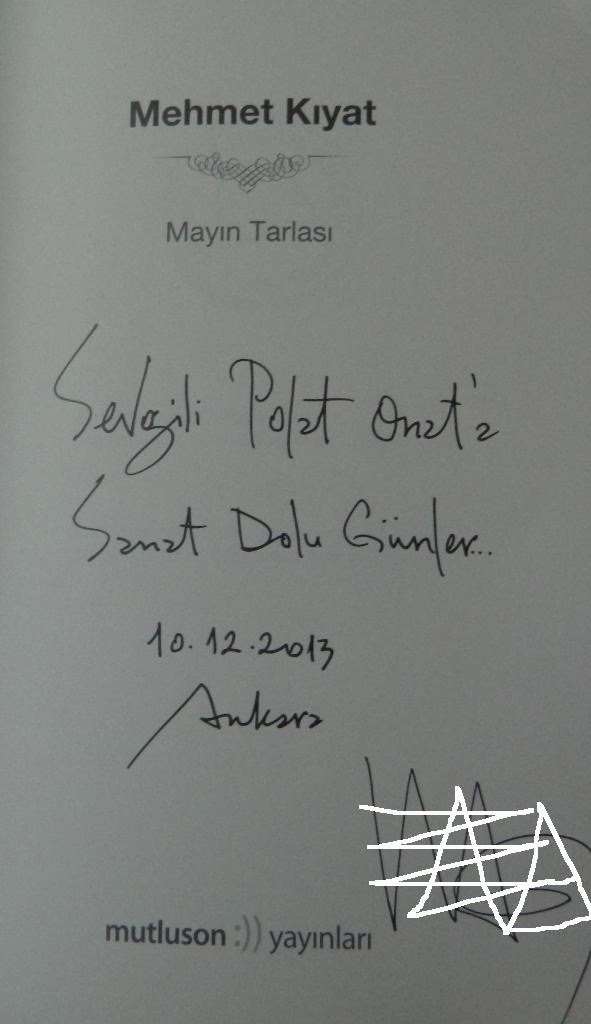 Mehmet Kıyat
Mayın Tarlası
Sevgili Polat Onat'a
Sanat Dolu Günler...
10.12.2013
Ankara
mutluson :)) yayınları